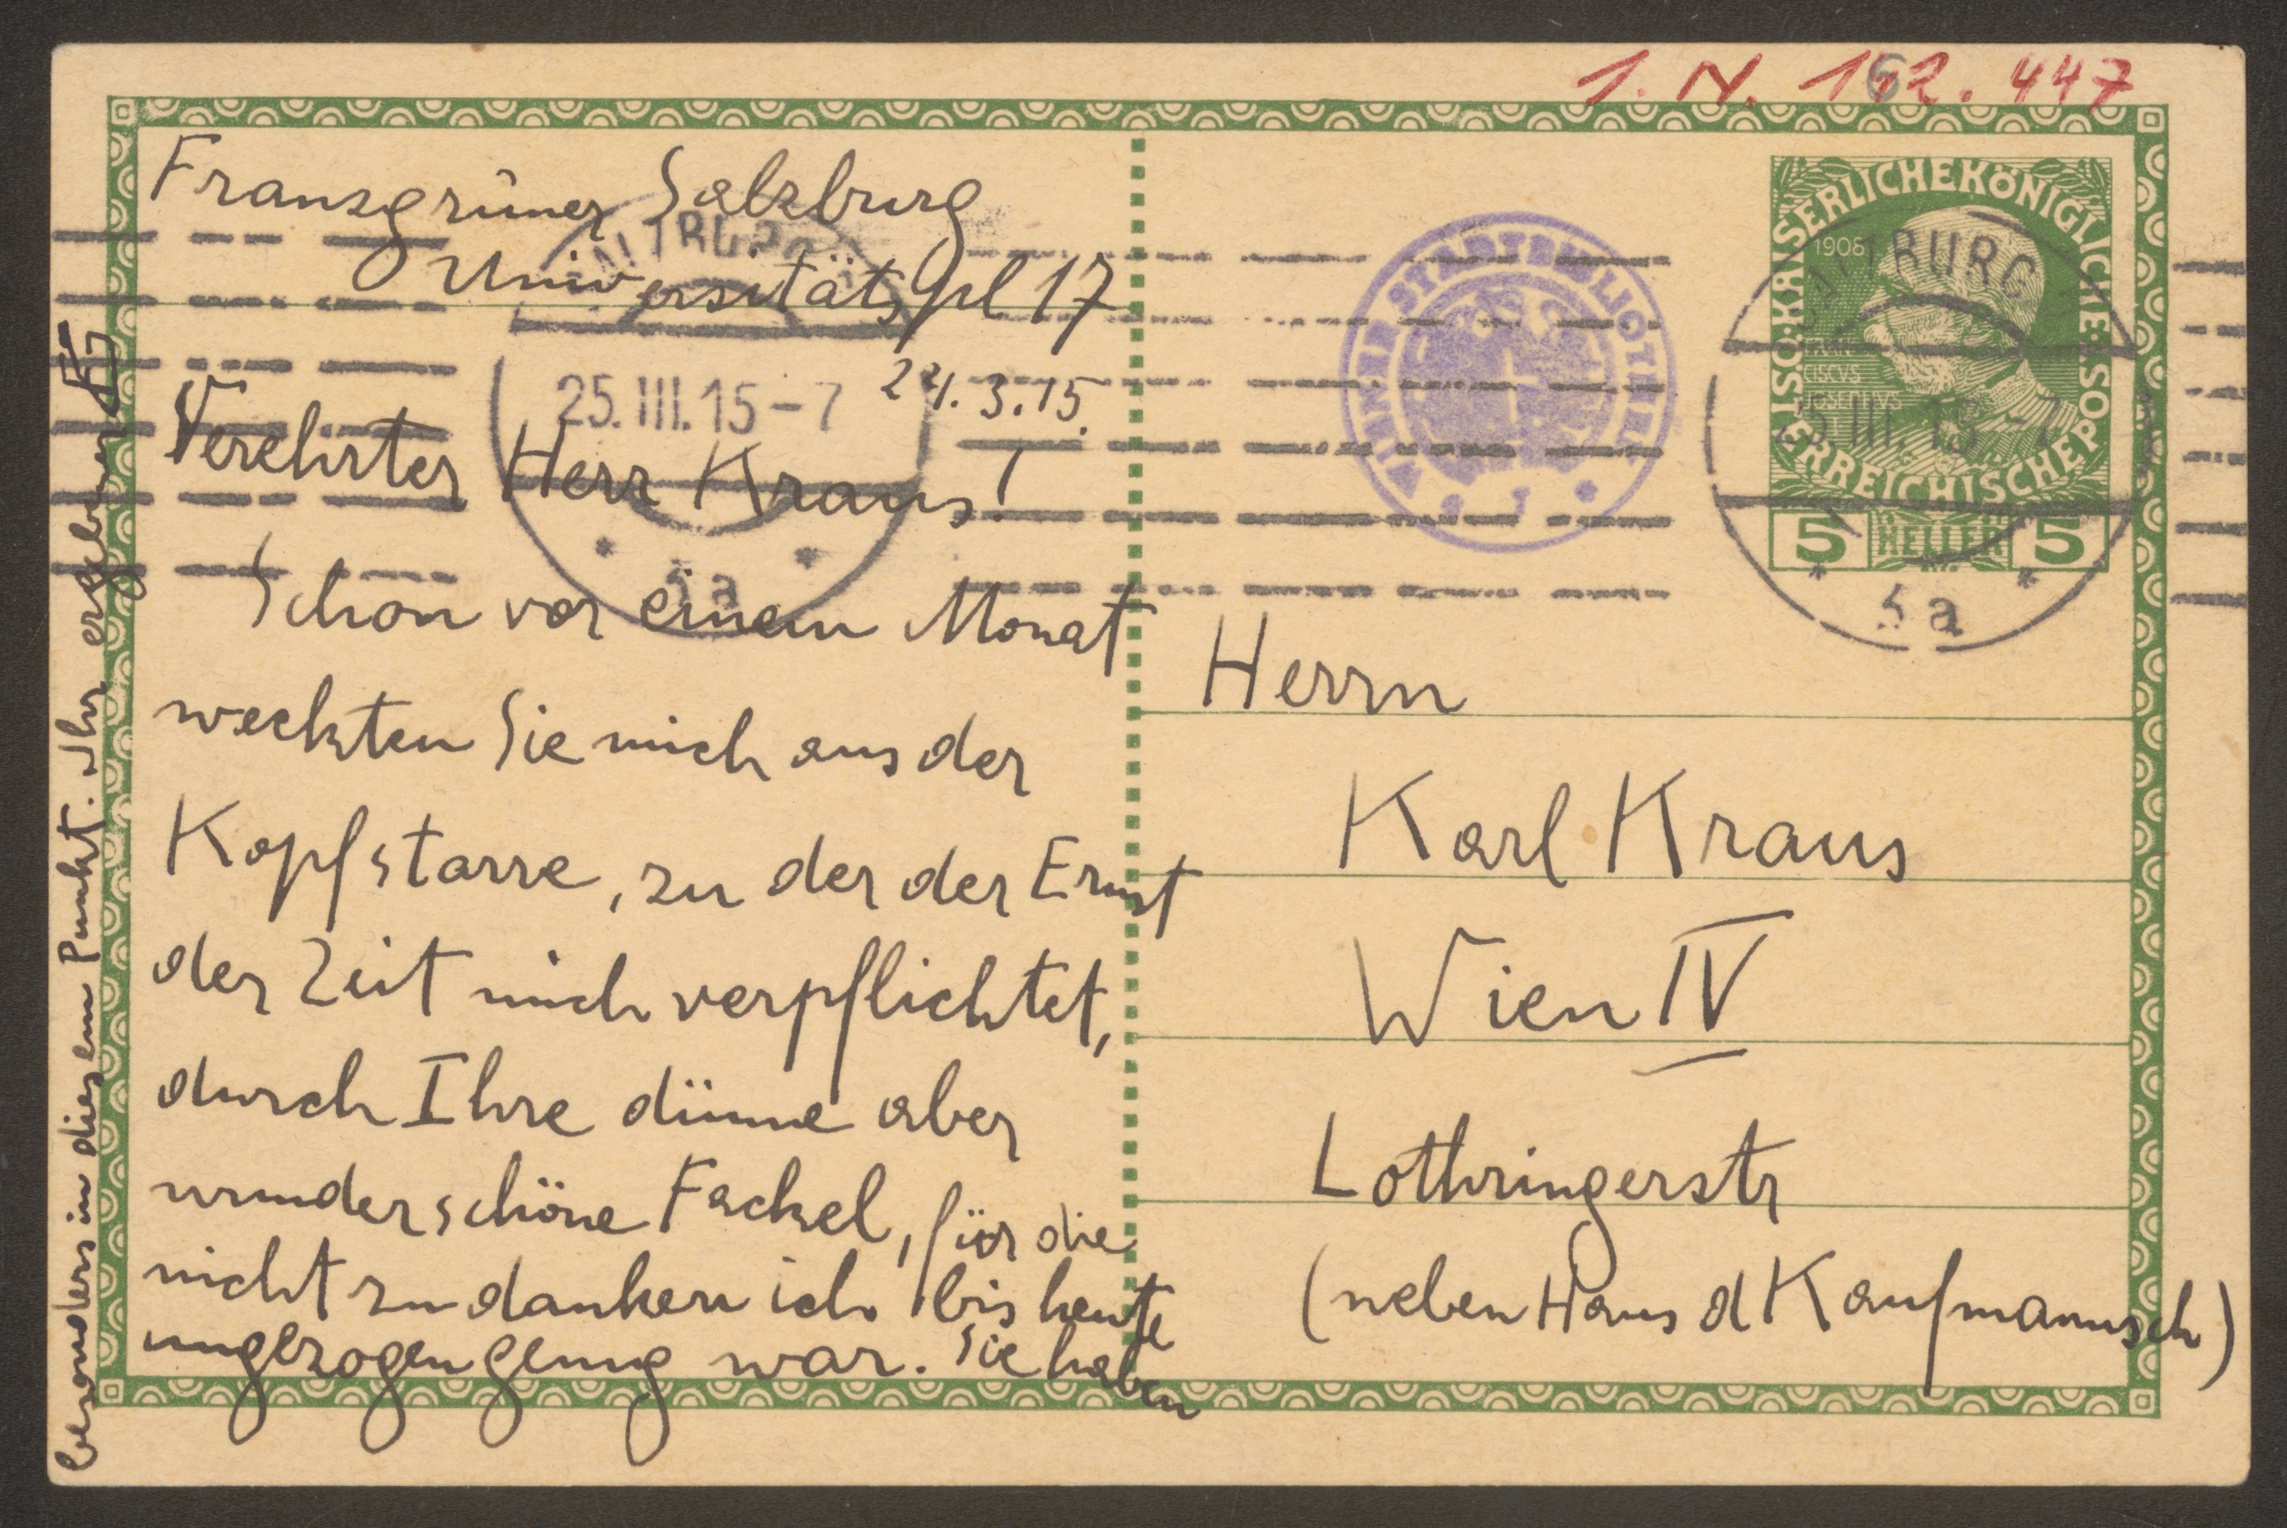 I. N. 162.447
Franz Grüner Salzburg
Universitätspl 17
24.3.15.
Verehrter Herr Kraus!
Schon vor einem Monat
weckten Sie mich aus der
Kopfstarre, zu der der Ernst
der Zeit mich verpflichtet,
durch Ihre dünne aber
wunderschöne Fackel, für die
nicht zu danken ich bis heute
ungezogen genug war. Sie haben
besonders in diesem Punkt. Ihr ergebener
25.III.15-7
5a
WIENER STADTBIBLIOTHEK
KAISERLICHE KÖNIGLICHE
ÖSTERREICHISCHE POST
1908
5 HELLER 5
25.III.15-7
5a
Herrn
Karl Kraus
Wien IV
Lothringerstr
(neben Haus d Kaufmannsch)